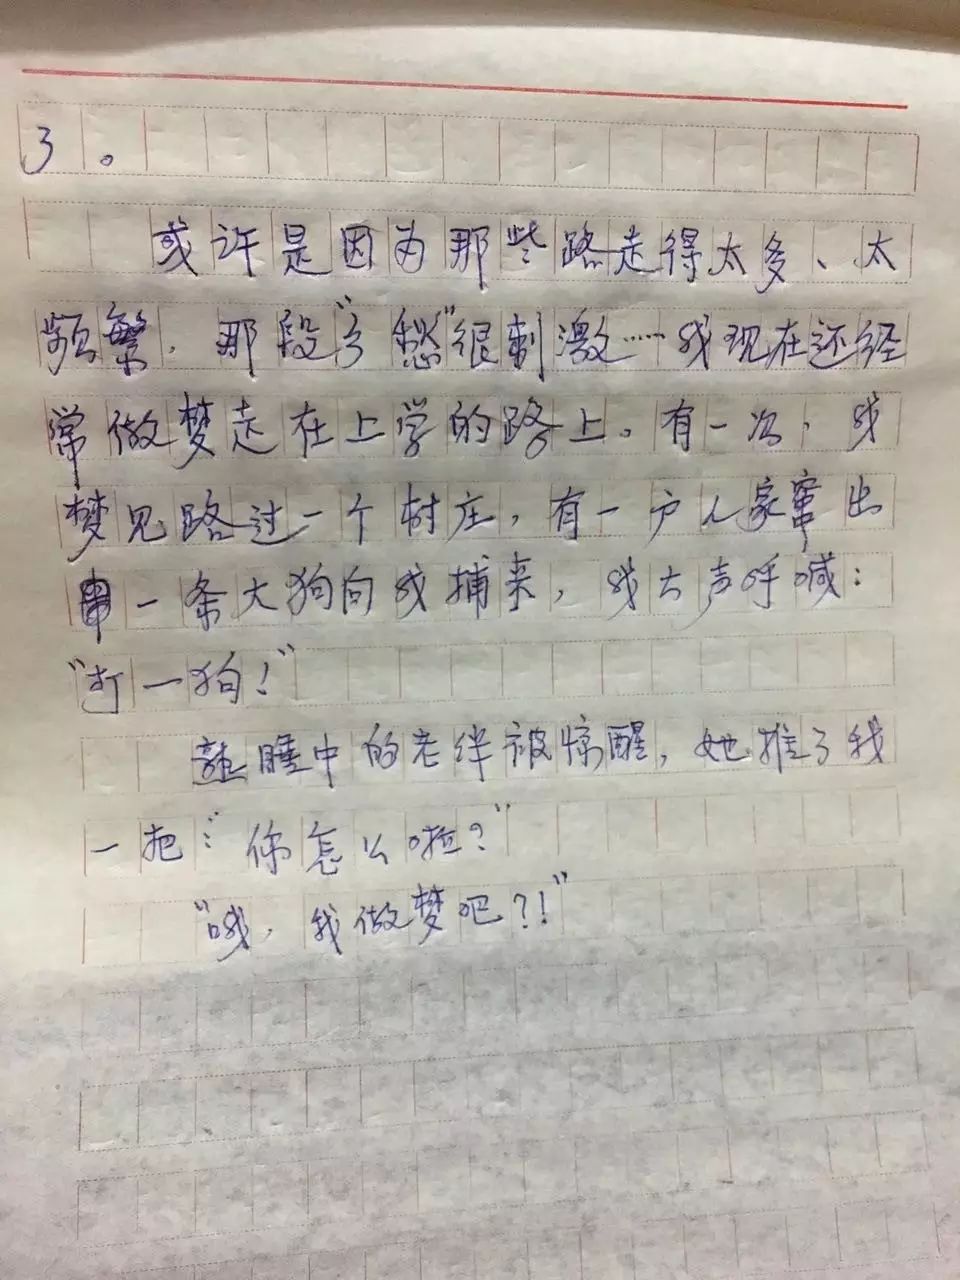 3。
或许是因为那些路走得太多、太
频繁，那段"乡愁"很刺激……我现在还经
常做梦走在上学的路上。有一次，我
梦见路过一个村庄，有一户人家窜出
一条大狗向我捕来，我大声呼喊：
"打一狗！"
睡中的老伴被惊醒，她推了我
一把："你怎么啦？"
"哦，我做梦吧？！"